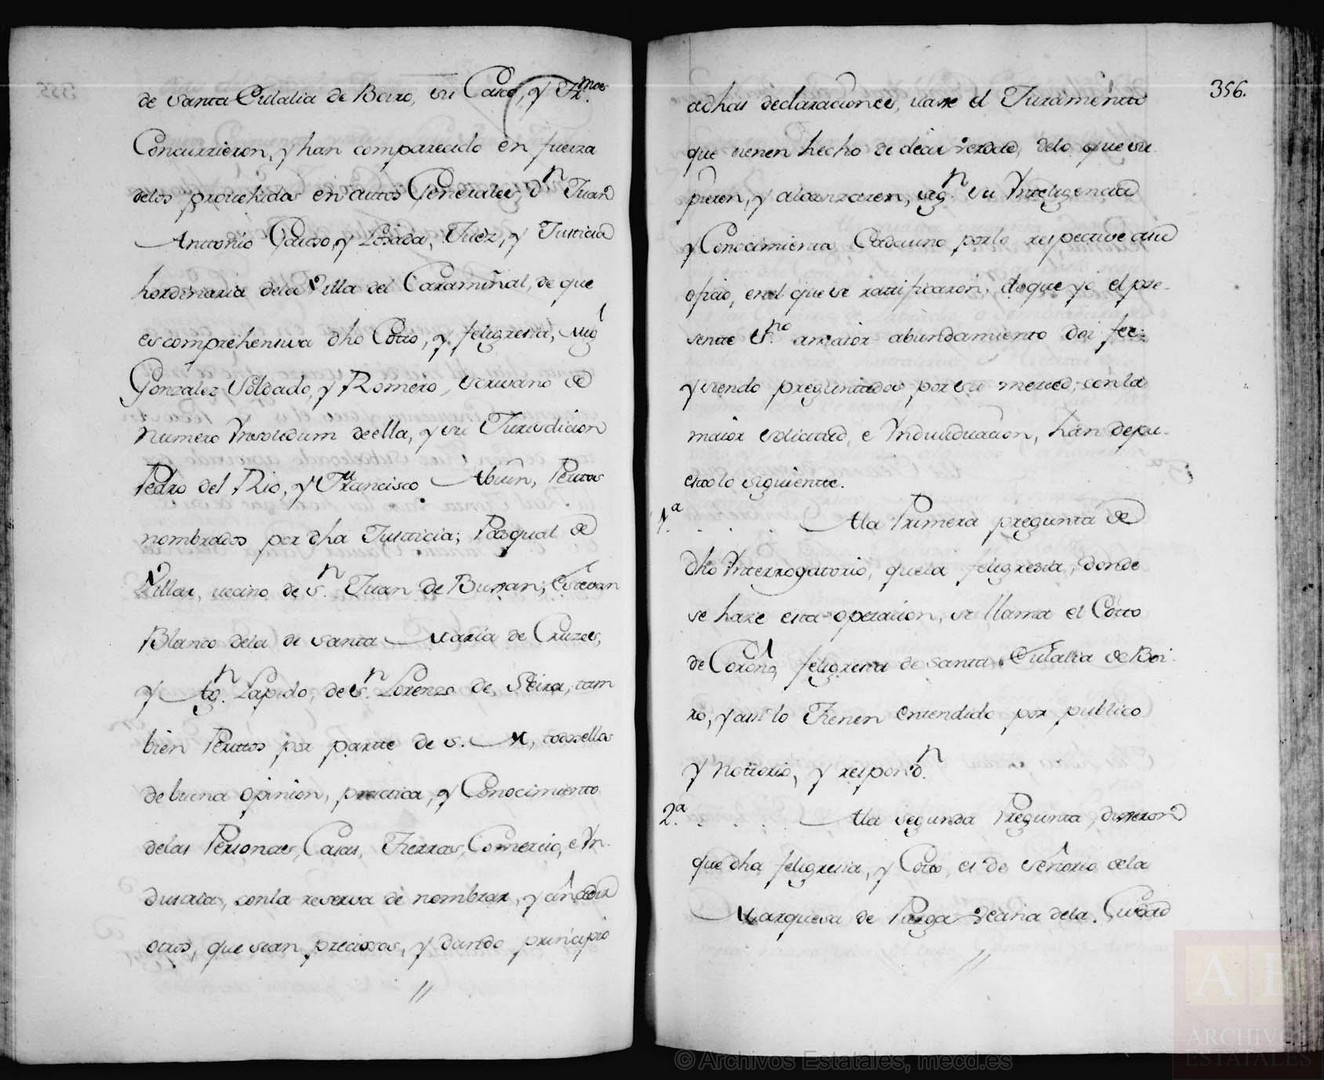 de Santa Eulalia de Boiro, su Casco, y Trmos.
Concurrieron, y han comparecido en fuerza
delos probehidos en autos Generales, Dn. Juan
Anttonio Losada, Juez, y Justicia
hordinaria dela Villa del Caramiñal, de que
es comprehensiva dho Cotto, y feligresia, Migl.
Gonzalez Soldado, y Romero, escrivano de
numero Insolidum de ella, y su Jurisdicion
Pedro del Rio, y Francisco Abuin, Peritos
nombrados por dha Justicia; Pasqual de
Villar, vecino de Sn. Juan de ; Estevan
Blanco dela de Santa Maria de Cruzes,
y Agn. Lapido, de Sn. Lorenzo de Seira, tam
bien Peritos por partte de S. M, todos ellos
de buena opinion, practica, y Conocimiento
delas Personas, Casas, Tierras, Comercio, e In-
dustria, con la reserva de nombrar, y añadir
otros, que sean precisos, y dando principio
//
356.
adhas declaraciones, vaxe el Juramentto
que tienen hecho de decir verdad, delo que su
pieren, y alcanzaren, segn. su Inteligencia
y Conocimiento Cadauno por lo respectivo asu
oficio, en el que se ratificaron, de que yo el pre-
sente Esno. amaior abundamiento doi fee:
y siendo preguntados por su merced, con la
maior solicitud, e Individuacion, han depu-
esto lo siguiente.
1.a Ala Primera pregunta de
dho Interrogatorio, que la feligresia, donde
se haze esta operacion, se llama el Cotto
de , feligresia de Santa Eulalia de Boi-
ro, y asi lo Tienen entendido por publico
y nottorio, y respondn.
2.a Ala segunda Pregunta, dixeron
que dha feligresia, y Coto, es de señorio dela
Marquesa de Parga vecina dela Ciudad
//
© Archivos Estatales, mecd.es
AE
ARCHIVOS
ESTATALES